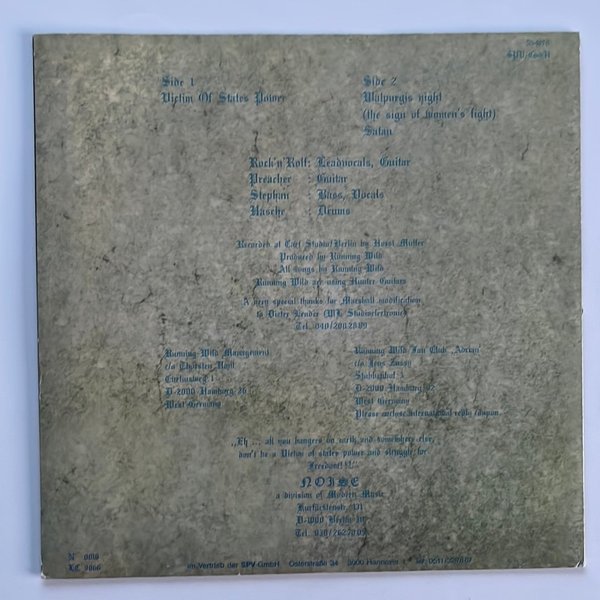 SPV GmbH
Side 1
Victim Of States Power
Side 2
Walpurgis night
(the sign of women's fight)
Satan
Rock'n'Rolf: Leadvocals, Guitar
Preacher : Guitar
Stephan : Bass, Vocals
Hasche : Drums
Recorded at Caet Studio/Berlin by Horst Müller
Produced by Running Wild
All songs by Running Wild
Running Wild are using Hunter Guitars
A very special thanks for Marshall modification
to Dieter (WL Studioelectronic)
Tel. 040/
Running Wild Management
c/o Thorsten
1
D-2000 Hamburg 26
West Germany
Running Wild Fan Club „Adrian"
c/o Jens
D-2000 Hamburg
West Germany
Please enclose international reply coupon.
„Eh ... all you bangers on earth and somewhere else,
don't be a Victim of states power and struggle for
Freedom!
NOISE
a division of Modern Music
Kurfürstenstr.
D-1000 Berlin
Tel. 030/
N
LC 9066
im Vertrieb der SPV-GmbH Osterstraße 34 3000 Hannover 1